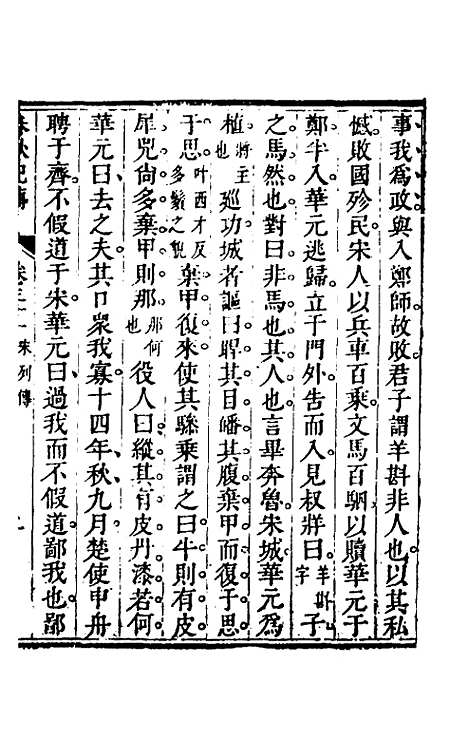 事我爲政與入鄭師故敗君子謂羊斟非人也以其私
憾敗國殄民宋人以兵車百乘文馬百駟以贖華元于
鄭半入華元逃歸立于門外告而入見叔牂曰羊斟字子
之馬然也對曰非馬也其人也言畢奔魯宋城華元爲
植將主也巡功城者謳曰睅其目皤其腹棄甲而復于思
于思叶西才反多鬚之貌棄甲復來使其驂乘謂之曰牛則有皮
犀兕尙多棄甲則那那何也役人曰縱其有皮丹漆若何
華元曰去之夫其口衆我寡十四年秋九月楚使申舟
聘于齊不假道于宋華元曰過我而不假道鄙我也鄙
春秋紀傳 卷三十一 宋列傳